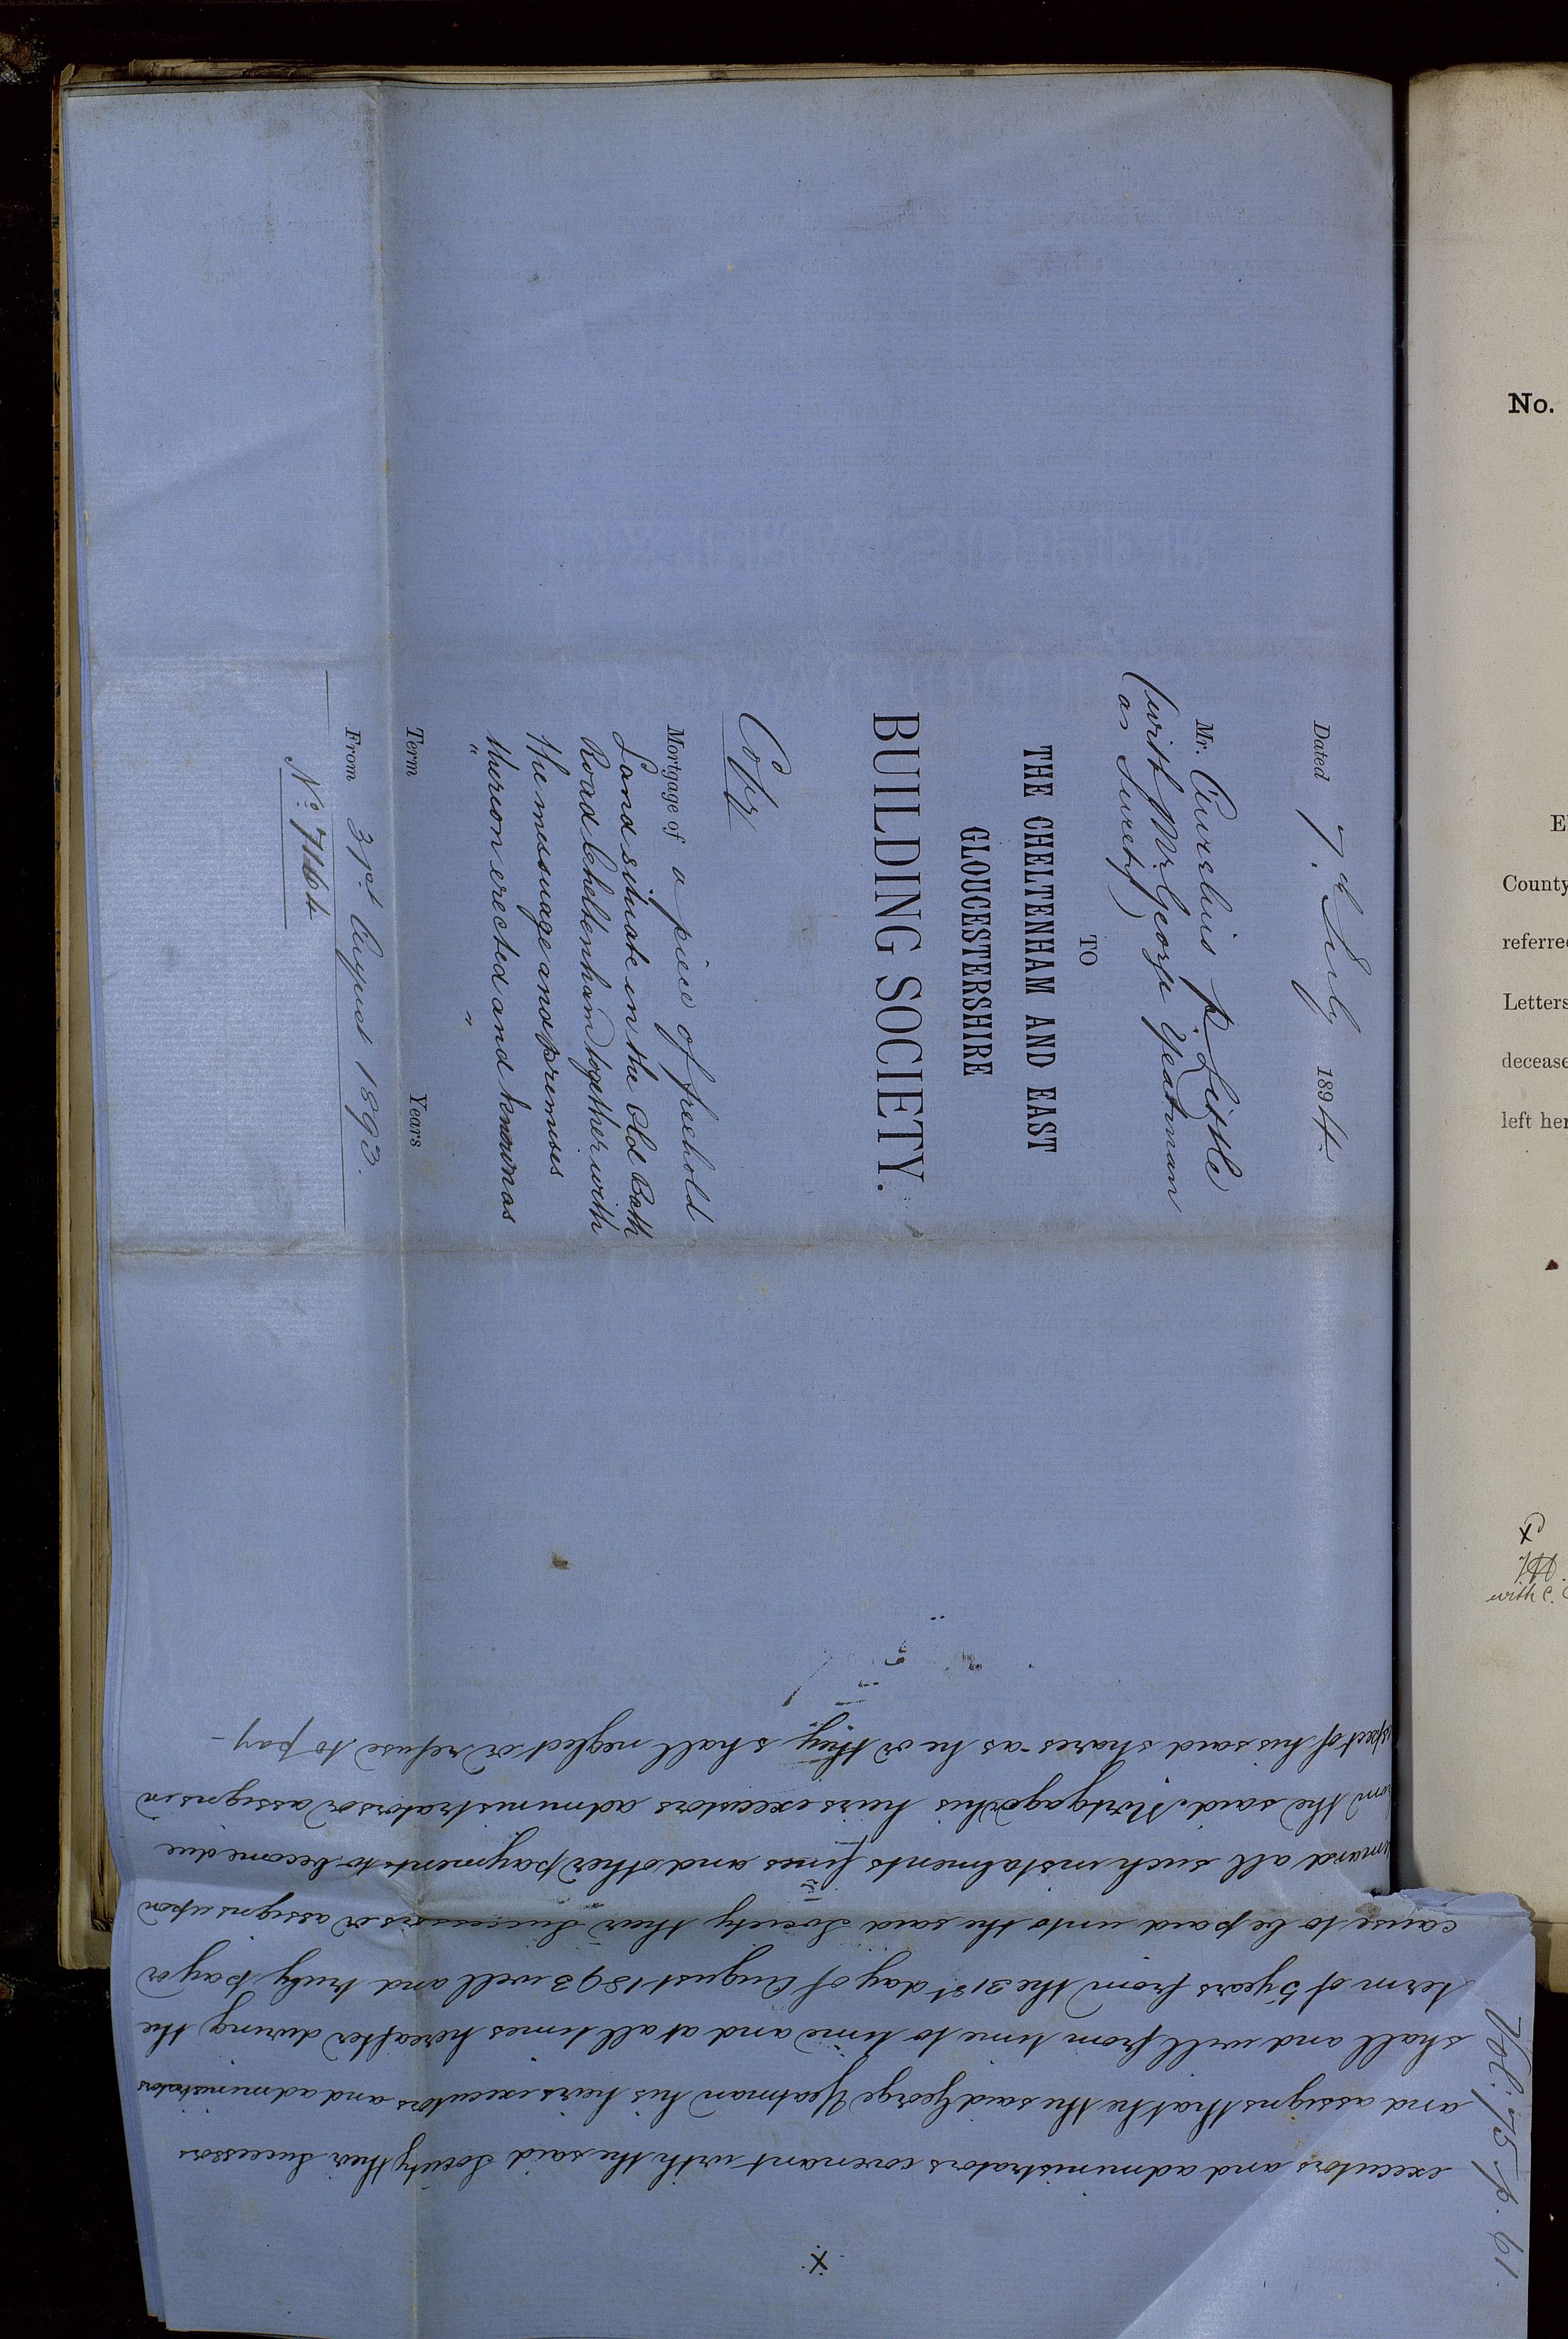 Dated 7th July 1894.
Mr. Aurelius P. Little
(with Mr. George Yeatman
as Surety)
TO
THE CHELTENHAM AND EAST
GLOUCESTERSHIRE
BUILDING SOCIETY.
Copy
Mortgage of a piece of freehold
Land situate in the Old Bath
Road Cheltenham together with
the messuage and premises
thereon erected and known as
" "
Term Years
From 31st August 1893.
No. 7164
x
executors and administrators covenant with the said Society their Successors
and assigns that he the said George Yeatman his heirs executors and administrators
shall and will from time to time and at all times hereafter during the
term of 5 years from the 31st day of August 1893 well and truly pay or
cause to be paid unto the said Society their Successors or assigns upon
demand all such instalments fines and other payments to become due
from the said Mortgagor his heirs executors administrators or assigns in
spect of his said shares as he or they shall neglect or refuse to pay -
Vol: 75 p. 61.
No.
E
County
referre
Letters
decease
left her
x
with C.